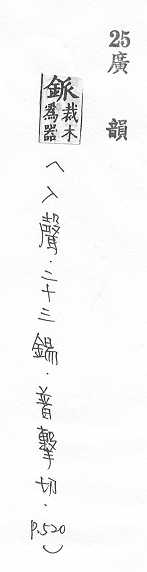 25廣韻
鈲裁木爲器
(入聲.二十三錫.普擊切.P.520)